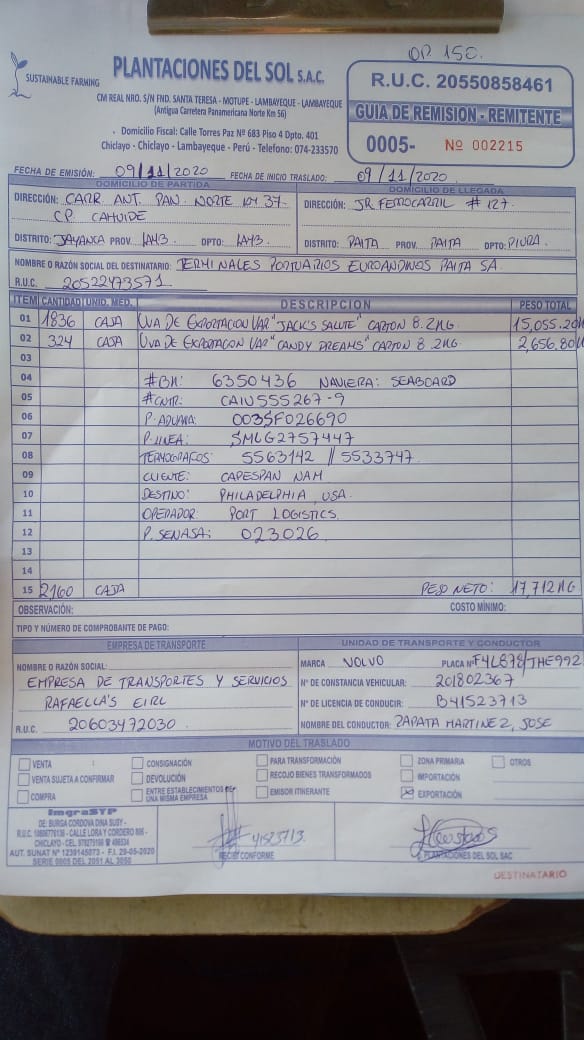 OP. 150.
SUSTAINABLE FARMING
PLANTACIONES DEL SOL S.A.C.
CM REAL NRO. S/N FND. SANTA TERESA - MOTUPE - LAMBAYEQUE - LAMBAYEQUE
(Antigua Carretera Panamericana Norte Km 56)
Domicilio Fiscal: Calle Torres Paz Nº 683 Piso 4 Dpto. 401
Chiclayo - Chiclayo - Lambayeque - Perú - Telefono: 074-233570
R.U.C. 20550858461
GUIA DE REMISION - REMITENTE
0005- Nº 002215
FECHA DE EMISIÓN: 09/11/2020 FECHA DE INICIO TRASLADO: 09/11/2020
DOMICILIO DE PARTIDA DOMICILIO DE LLEGADA
DIRECCIÓN: CARR. ANT. PAN. NORTE KM 37. DIRECCIÓN: JR FERROCARRIL # 127.
C.P. CAHUIDE
DISTRITO: JAYANCA PROV. LAMB. DPTO: LAMB. DISTRITO: PAITA PROV. PAITA DPTO: PIURA.
NOMBRE O RAZÓN SOCIAL DEL DESTINATARIO: TERMINALES PORTUARIOS EUROANDINOS PAITA SA.
R.U.C. 20522473571
ITEM CANTIDAD UNID. MED. DESCRIPCION PESO TOTAL
01 1836 CAJA UVA DE EXPORTACION VAR "JACK'S SALUTE" CARTON 8.2KG. 15,055.20KG
02 324 CAJA UVA DE EXPORTACION VAR "CANDY DREAMS" CARTON 8.2KG 2,656.80KG
03
04 #BK: 6350436 NAVIERA: SEABOARD
05 #CNTR: CAIU 555267-9
06 P. ADUANA: 0035F026690
07 P. LINEA: SMLG2757447
08 TERMOGRAFOS: 5563142 // 5533747
09 CLIENTE: CAPESPAN NAM
10 DESTINO: PHILADELPHIA, USA.
11 OPERADOR: PORT LOGISTICS.
12 P. SENASA: 023026
13
14
15 2160 CAJA PESO NETO: 17,712KG
OBSERVACIÓN: COSTO MÍNIMO:
TIPO Y NÚMERO DE COMPROBANTE DE PAGO:
EMPRESA DE TRANSPORTE UNIDAD DE TRANSPORTE Y CONDUCTOR
NOMBRE O RAZÓN SOCIAL: MARCA VOLVO PLACA Nº F4L878/THE992
EMPRESA DE TRANSPORTES Y SERVICIOS Nº DE CONSTANCIA VEHICULAR: 201802367
RAFAELLA'S EIRL Nº DE LICENCIA DE CONDUCIR: B41523713
R.U.C. 20603472030 NOMBRE DEL CONDUCTOR: ZAPATA MARTINEZ, JOSE
MOTIVO DEL TRASLADO
VENTA CONSIGNACIÓN PARA TRANSFORMACIÓN ZONA PRIMARIA OTROS
VENTA SUJETA A CONFIRMAR DEVOLUCIÓN RECOJO BIENES TRANSFORMADOS IMPORTACIÓN
COMPRA ENTRE ESTABLECIMIENTOS DE UNA MISMA EMPRESA EMISOR ITINERANTE EXPORTACIÓN
ImgraSYP
DE: BURGA CORDOVA DINA SUSY -
CALLE LORA Y CORDERO
AUT. SUNAT Nº 1239145073 - F.I. 29-05-2020
SERIE 0005 DEL 2051 AL 3050
41523713.
RECIBÍ CONFORME
PLANTACIONES DEL SOL SAC
DESTINATARIO